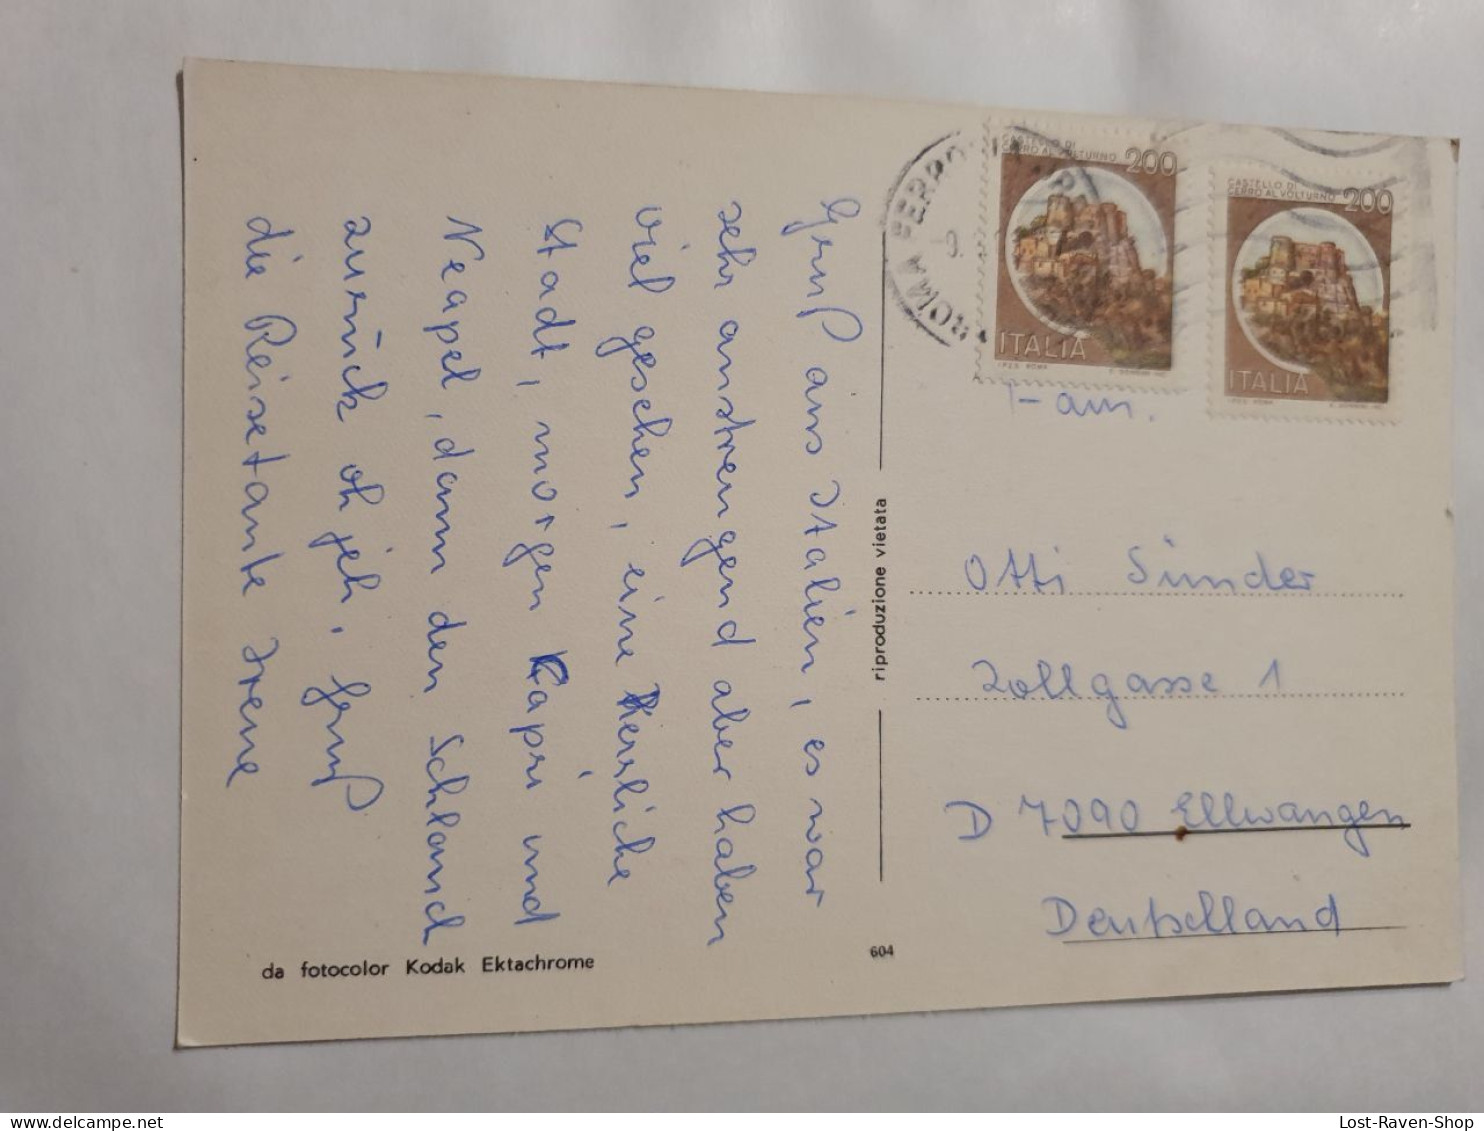 Gruß aus Italien, es war
sehr anstrengend aber haben
viel gesehen, eine herrliche
Stadt, morgen Kapri und
Neapel, dann den Schland
zurück oh jeh, Gruß
die Reisetante Irene
da fotocolor Kodak Ektachrome
riproduzione vietata
604
ROMA FERROVIA
CASTELLO DI
CERRO AL VOLTURNO 200
ITALIA
I.P.Z.S. ROMA
CASTELLO DI
CERRO AL VOLTURNO 200
ITALIA
I.P.Z.S. ROMA
Fam.
Otti Sünder
Zollgasse 1
D 7090 Ellwangen
Deutschland
Lost-Raven-Shop